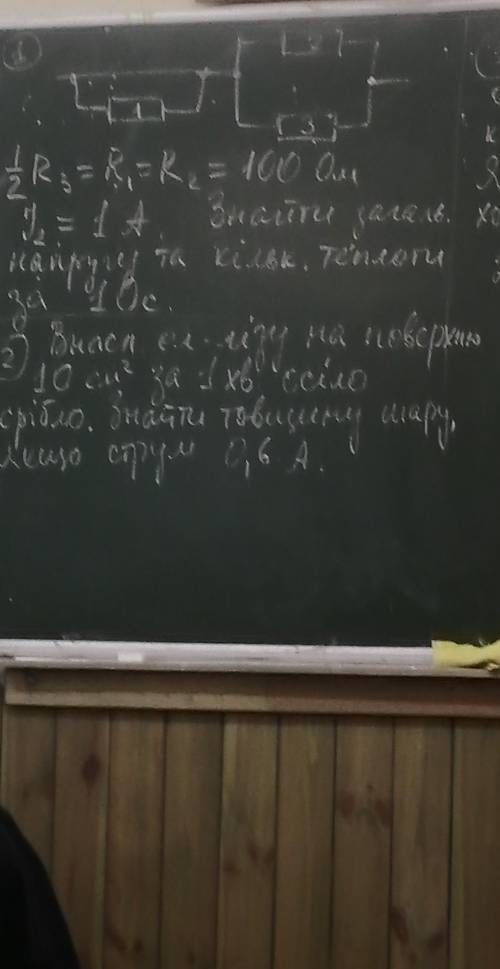 1
1
2
3
½ R₃ = R₁ = R₂ = 100 Ом
I₂ = 1 А. Знайти загальн.
напругу та кільк. теплоти
за 10с.
2) Внасл ел-лізу на поверхню
10 см² за 1 хв осіло
срібло. Знайти товщину шару,
якщо струм 0,6 А.